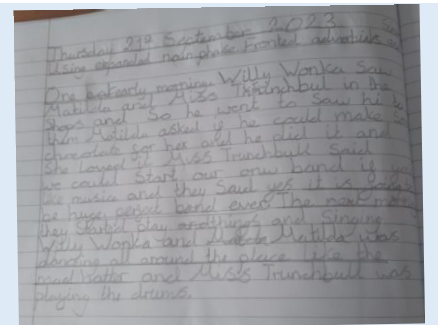 Thursday 21st September 2023
Using expanded noun phrase fronted adverbials
One early morning Willy Wonka Saw
Matilda and Miss Thrunchbul in the
Shops and So he went to Saw hi to
them Matilda asked if he could make
chocolate for her and he did it and
She loved it Miss Trunchbull Said
we could Start our onw band if you
like music and they Said yes it is
be huge band ever The next
they Started play and Singing
Willy Wonka and Matilda was
dancing all around the place like the
mad hatter and Miss Trunchbull was
playing the drums.